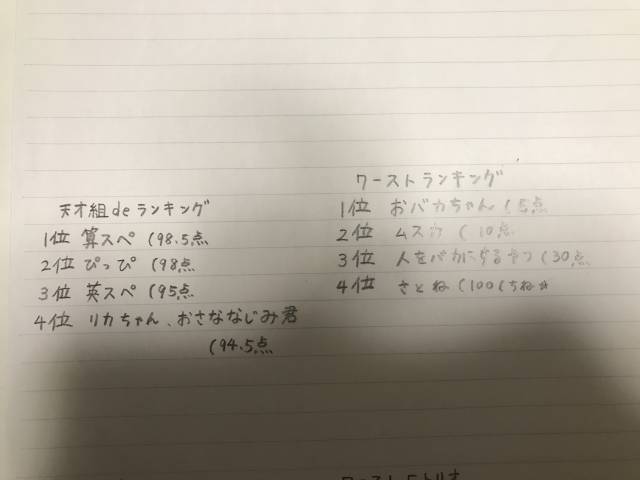 天才組deランキング
1位 算スペ (98.5点
2位 ぴっぴ (98点
3位 英スペ (95点
4位 リカちゃん、おさななじみ君
(94.5点
ワーストランキング
1位 おバカちゃん (5点
2位 ムスカ (10点
3位 人をバカにするやつ (30点
4位 さとね (100